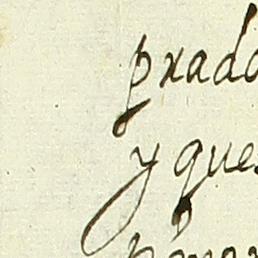 prado
y que